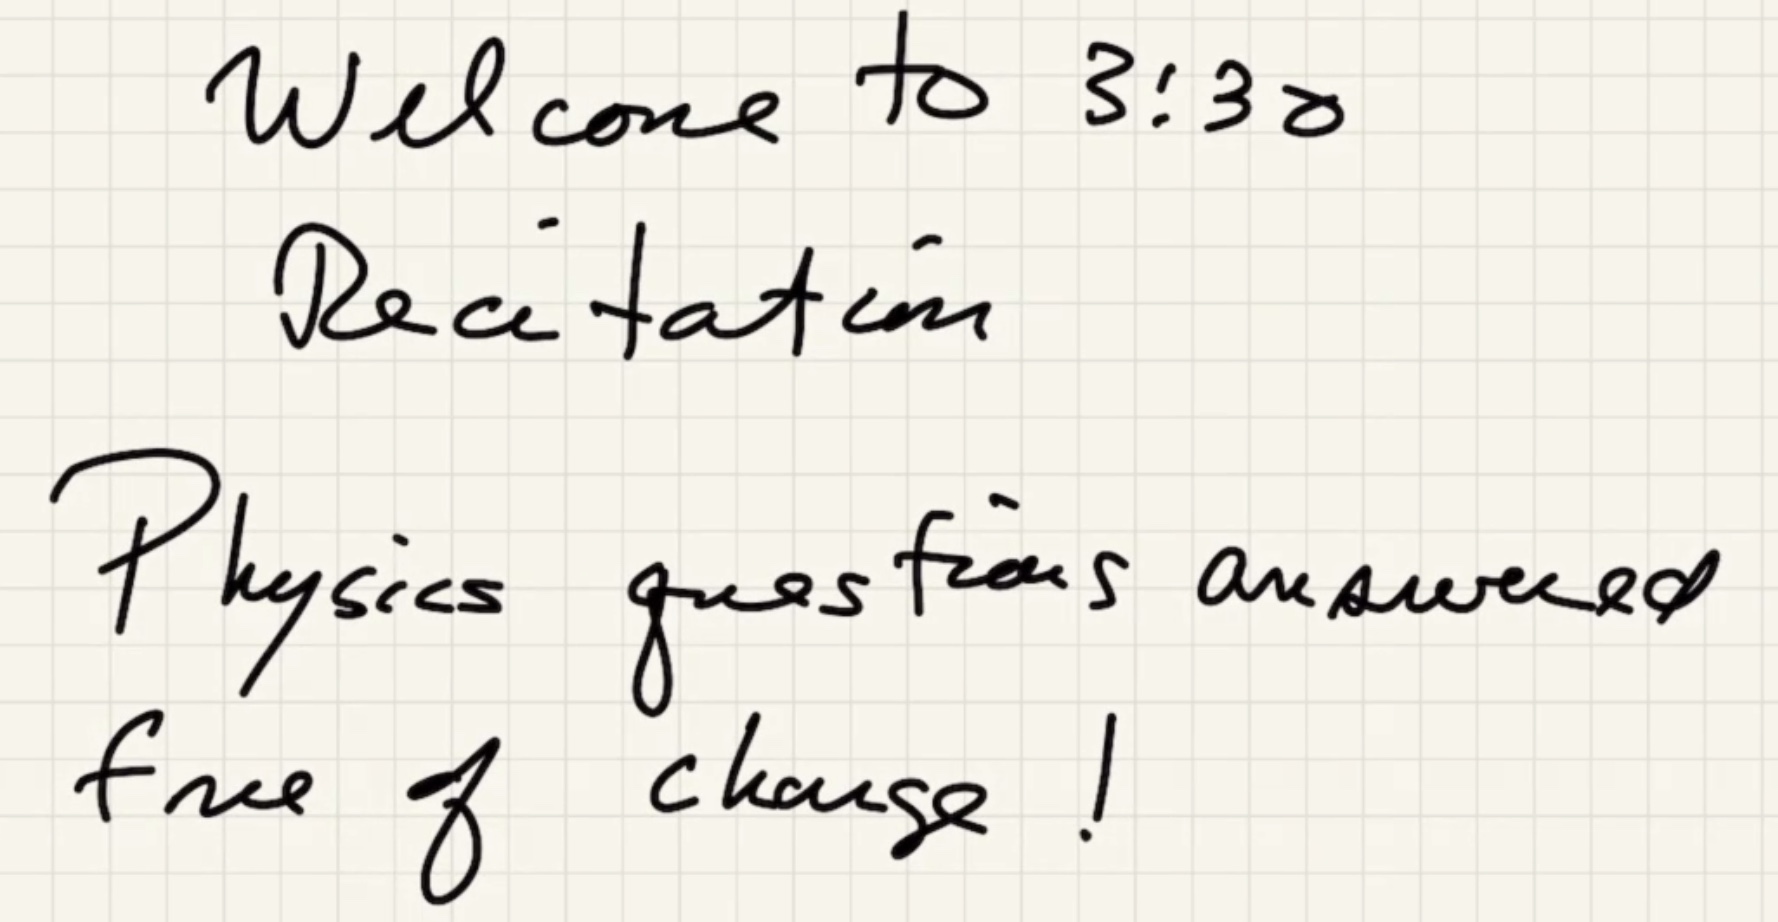 Welcome to 3:30
Recitation
Physics questions answered
free of charge!